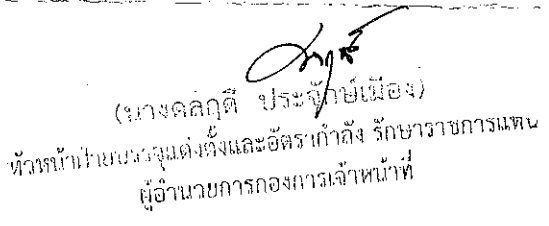 (นางดลฤดี ประจักษ์เมือง)
หัวหน้าฝ่ายบรรจุแต่งตั้งและอัตรากำลัง รักษาราชการแทน
ผู้อำนวยการกองการเจ้าหน้าที่